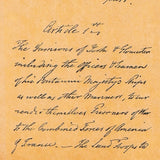 Article 1st
The Garrisons of York & Gloucester
including the Officers and Seamen
of his Britannic Majesty's Ships
as well as other Mariners, to sur-
render themselves Prisoners of War
to the Combined Forces of America
& France. — The Land Troops to